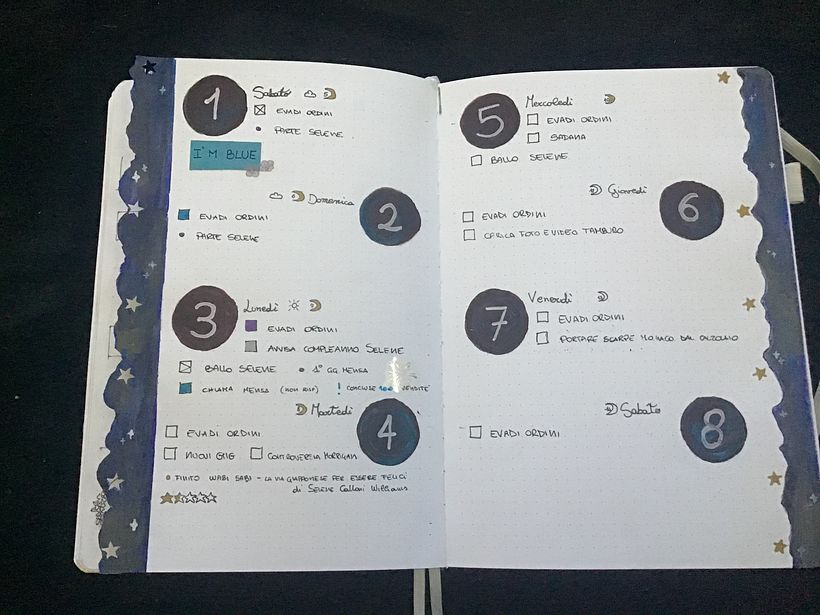 1 Sabato
EVADI ORDINI
PARTE SELENE
I'M BLUE
Domenica 2
EVADI ORDINI
PARTE SELENE
3 Lunedì
EVADI ORDINI
AVVISA COMPLEANNO SELENE
BALLO SELENE 1° GG MENSA
CHIAMA MENSA (NON RISP) ! CONCLUSE 100 VENDITE
Martedì 4
EVADI ORDINI
NUOVI GUG CONTROVERSIA MORRIGAN
FINITO WABI SABI - LA VIA GIAPPONESE PER ESSERE FELICI
di Selene Calloni Williams
5 Mercoledì
EVADI ORDINI
SADANA
BALLO SELENE
Giovedì 6
EVADI ORDINI
CARICA FOTO E VIDEO TAMBURO
7 Venerdì
EVADI ORDINI
PORTARE SCARPE MONACO DAL CALZOLAIO
Sabato 8
EVADI ORDINI